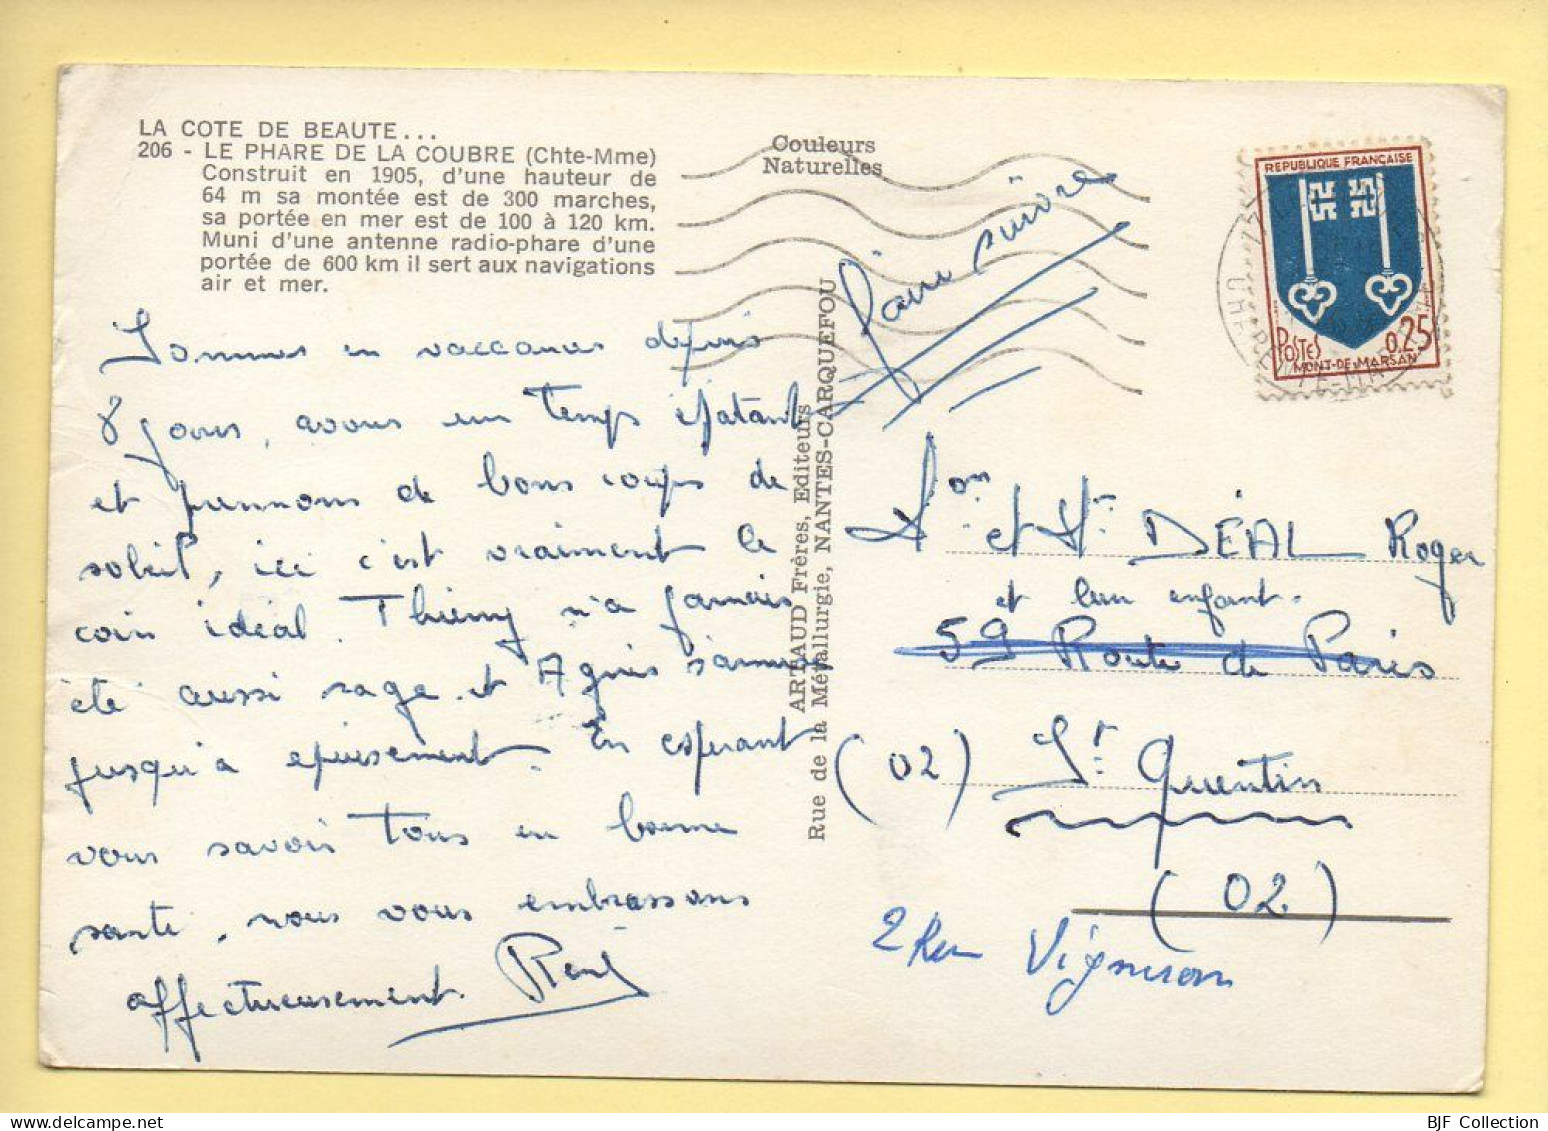 LA COTE DE BEAUTE...
206 - LE PHARE DE LA COUBRE (Chte-Mme)
Construit en 1905, d'une hauteur de
64 m sa montée est de 300 marches,
sa portée en mer est de 100 à 120 km.
Muni d'une antenne radio-phare d'une
portée de 600 km il sert aux navigations
air et mer.
Sommes en vaccances depuis
8 jours, avons eu un temps épatant
et prennons de bons coups de
soleil, ici c'est vraiment le
coin idéal. Thierry n'a jamais
été aussi sage et Agnès s'amuse
jusqu'à épuisement. En espérant
vous savoir tous en bonne
santé, nous vous embrassons
affectueusement. René
Couleurs
Naturelles
Faire suivre
ARTAUD Frères, Editeurs
Rue de la Métallurgie, NANTES-CARQUEFOU
REPUBLIQUE FRANÇAISE
POSTES 0,25
MONT-DE-MARSAN
et DÉAL Roger
et leur enfant.
59 Route de Paris
(02) St Quentin
(02)
2 Rue
BJF Collection